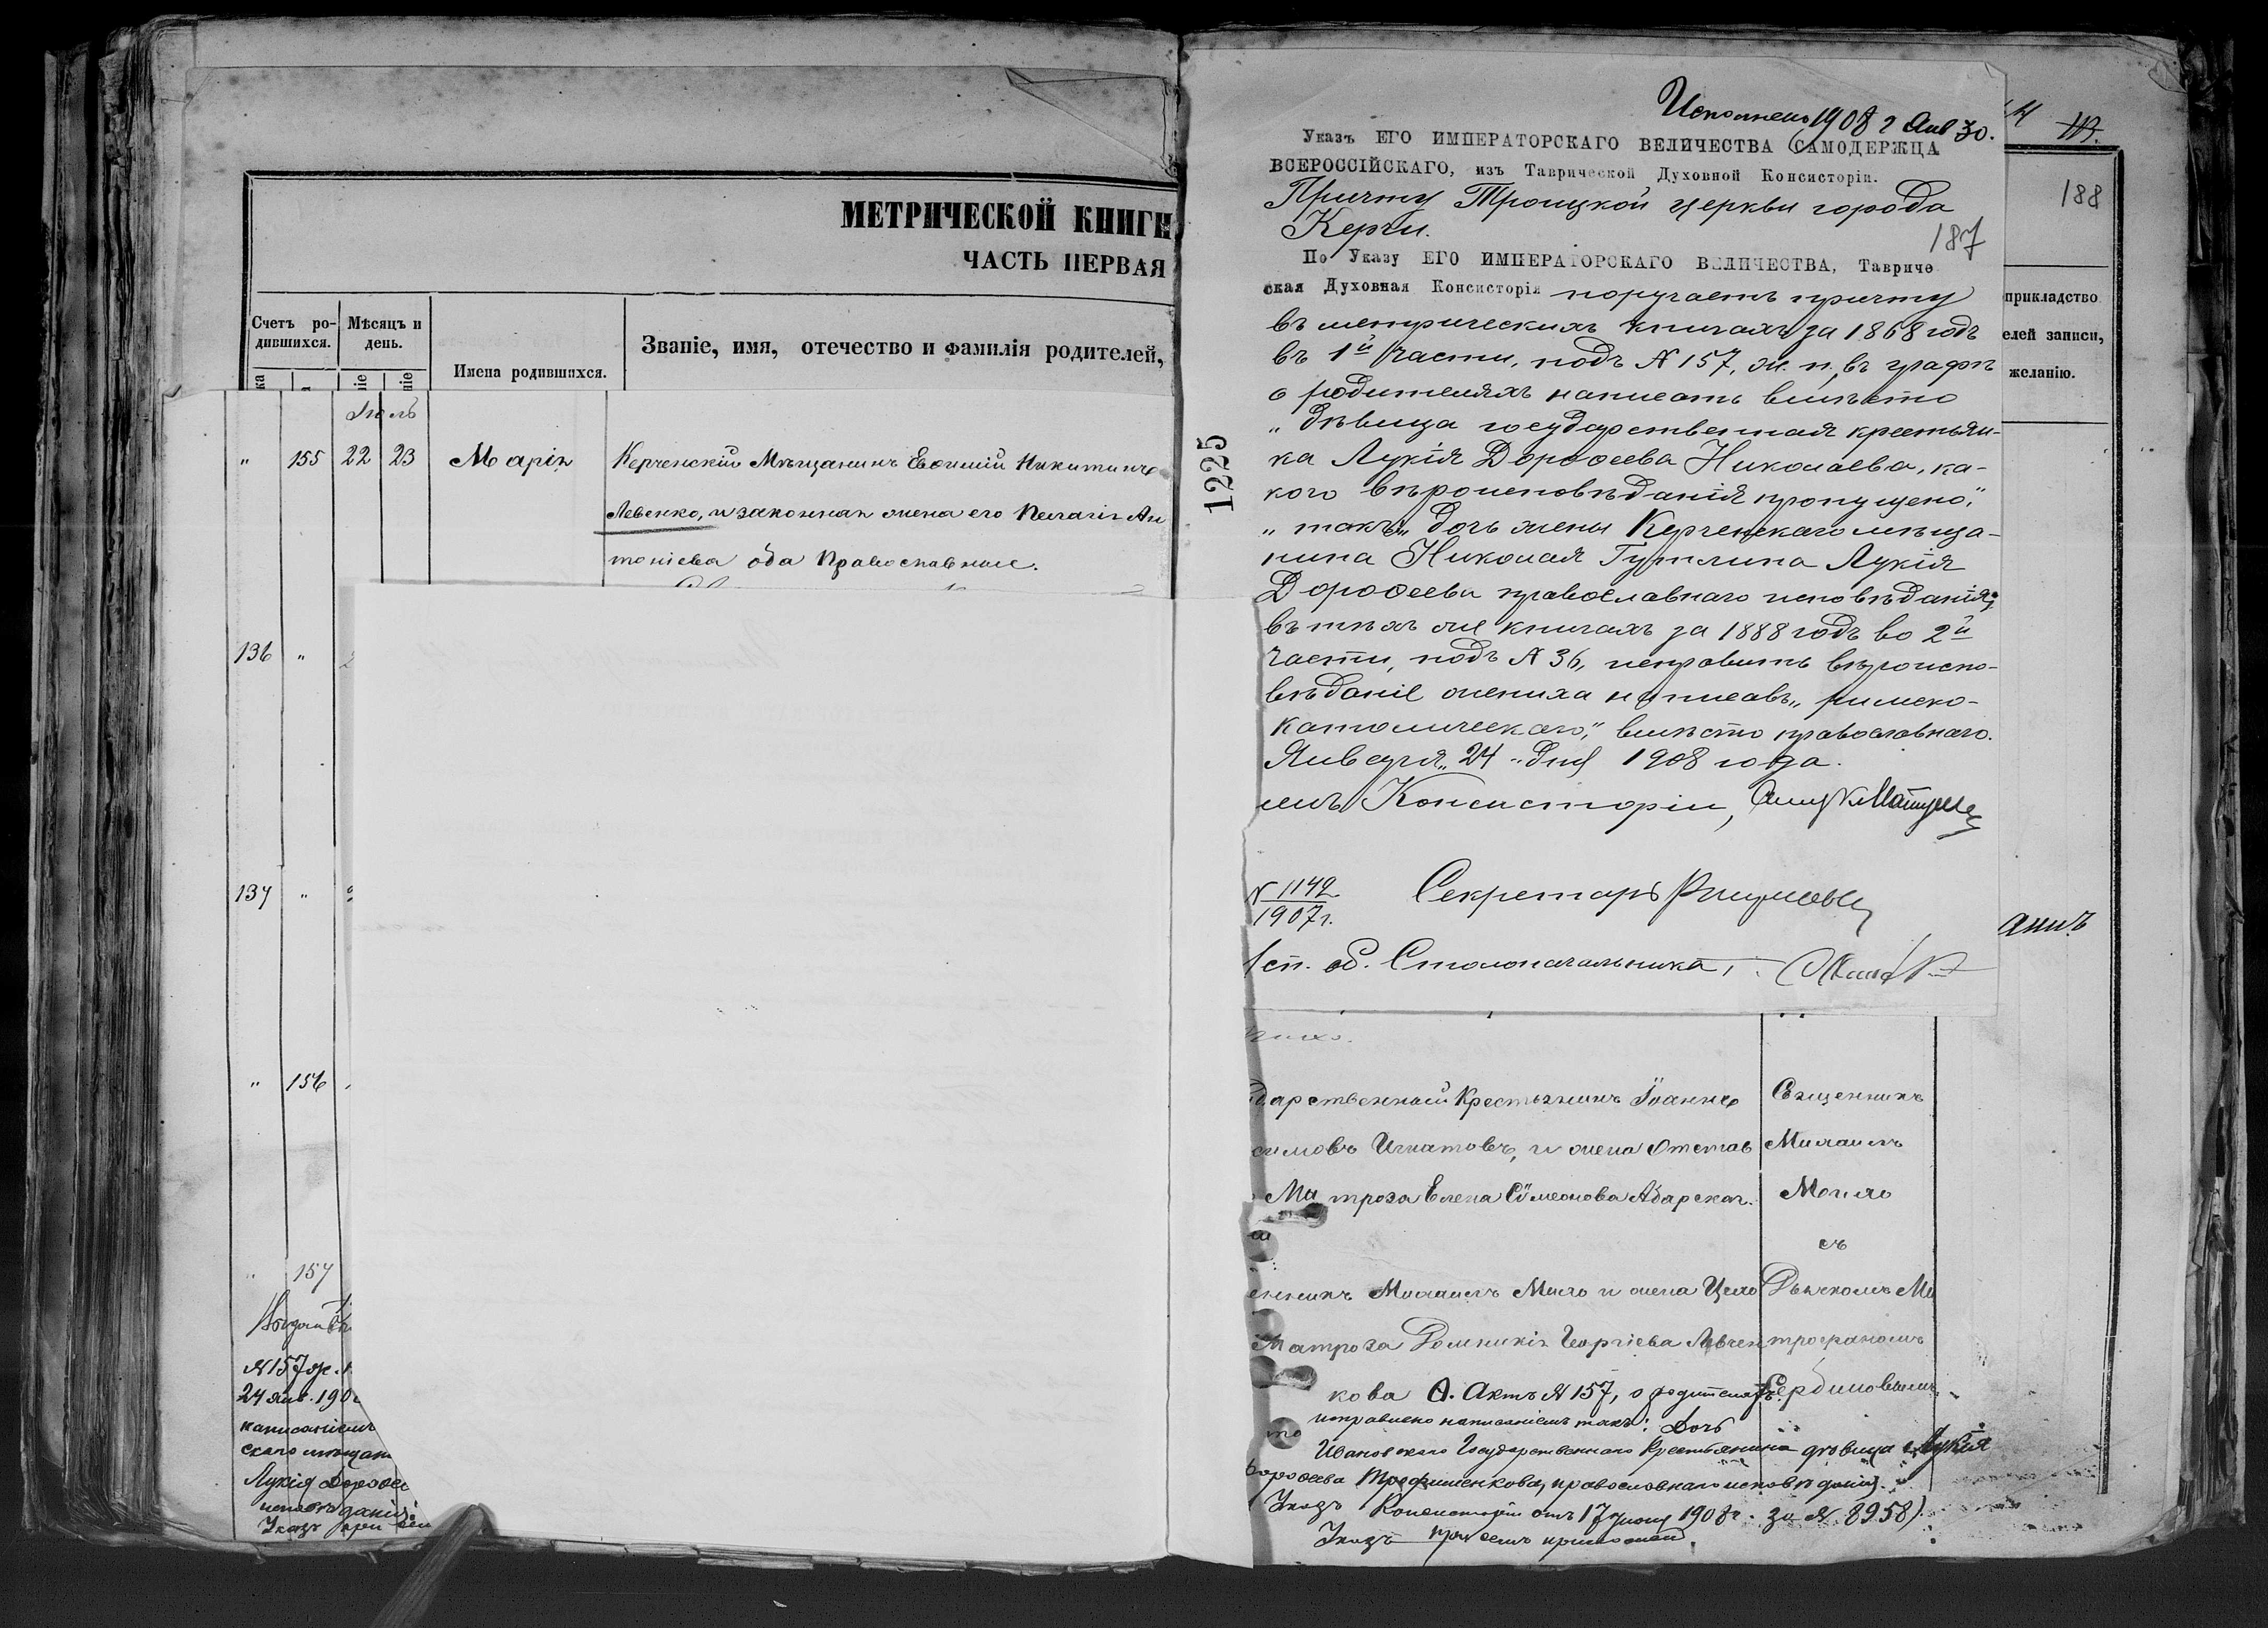 МЕТРИЧЕСКОЙ КНИГИ
ЧАСТЬ ПЕРВАЯ
Счетъ ро-
дившихся.
Мѣсяцъ и
день.
Имена родившихся.
Званіе, имя, отечество и фамилія родителей,
Іюль
" 155 22 23 Марія Керченскій Мѣщанинъ Евѳимій Никитинъ
Левенко, и законная жена его Пелагія Ан
тоніева оба Православные.
136 "
137 "
" 156
" 157
N 157 ж.
24 янв. 190
написаніемъ
скаго мѣщан
Лукія Дороѳе
исповѣданія.
Указъ при сем
Исполнено 1908 г Янв 30.
Указъ ЕГО ИМПЕРАТОРСКАГО ВЕЛИЧЕСТВА САМОДЕРЖЦА
ВСЕРОССІЙСКАГО, изъ Таврической Духовной Консисторіи.
Причту Троицкой церкви города
Керчи.
187
По Указу ЕГО ИМПЕРАТОРСКАГО ВЕЛИЧЕСТВА, Тавриче
ская Духовная Консисторія поручаетъ причту
въ метрическихъ книгахъ за 1868 годъ
въ 1й части, подъ N 157, ж. п., въ графѣ
о родителяхъ написать вмѣсто
"дѣвица государственная крестьян-
ка Лукія Дороѳеева Николаева, ка-
кого вѣроисповѣданія пропущено,"
"такъ" дочь жены Керченскаго мѣща-
нина Николая Гутлина Лукія
Дороѳеевы православнаго исповѣданія;
въ тѣхъ же книгахъ за 1888 годъ во 2й
части, подъ N 36, исправить вѣроиспо-
вѣданіе жениха написавъ "римско-
католическаго," вмѣсто православнаго.
Января "24" дня 1908 года.
ленъ Консисторіи,
1225
N 1142
1907 г.
Секретарь
Исп. об. Столоначальника,
188
прикладство
елей записи,
желанію.
анинъ
дарственный Крестьянинъ Іоаннъ
симовъ Игнатовъ, и жена Отстав
Матроза Елена Сѵмеонова Абарская.
енникъ Михаилъ Мило и жена Цехо
Матроза Домникія Георгіева Левчен
кова
Священникъ
Михаилъ
Мочило
съ
Дьячкомъ Ми
трофаномъ
Сердиновымъ.
Актъ N 157, о родителяхъ
исправлено написаніемъ такъ: Дочь
Ивановскаго Государственнаго Крестьянина дѣвица Лукія
Дороѳеева Трофименкова, православнаго исповѣданія.
Указъ Консисторіи отъ 17 іюня 1908 г. за N 8958).
Указъ при семъ приложенъ.